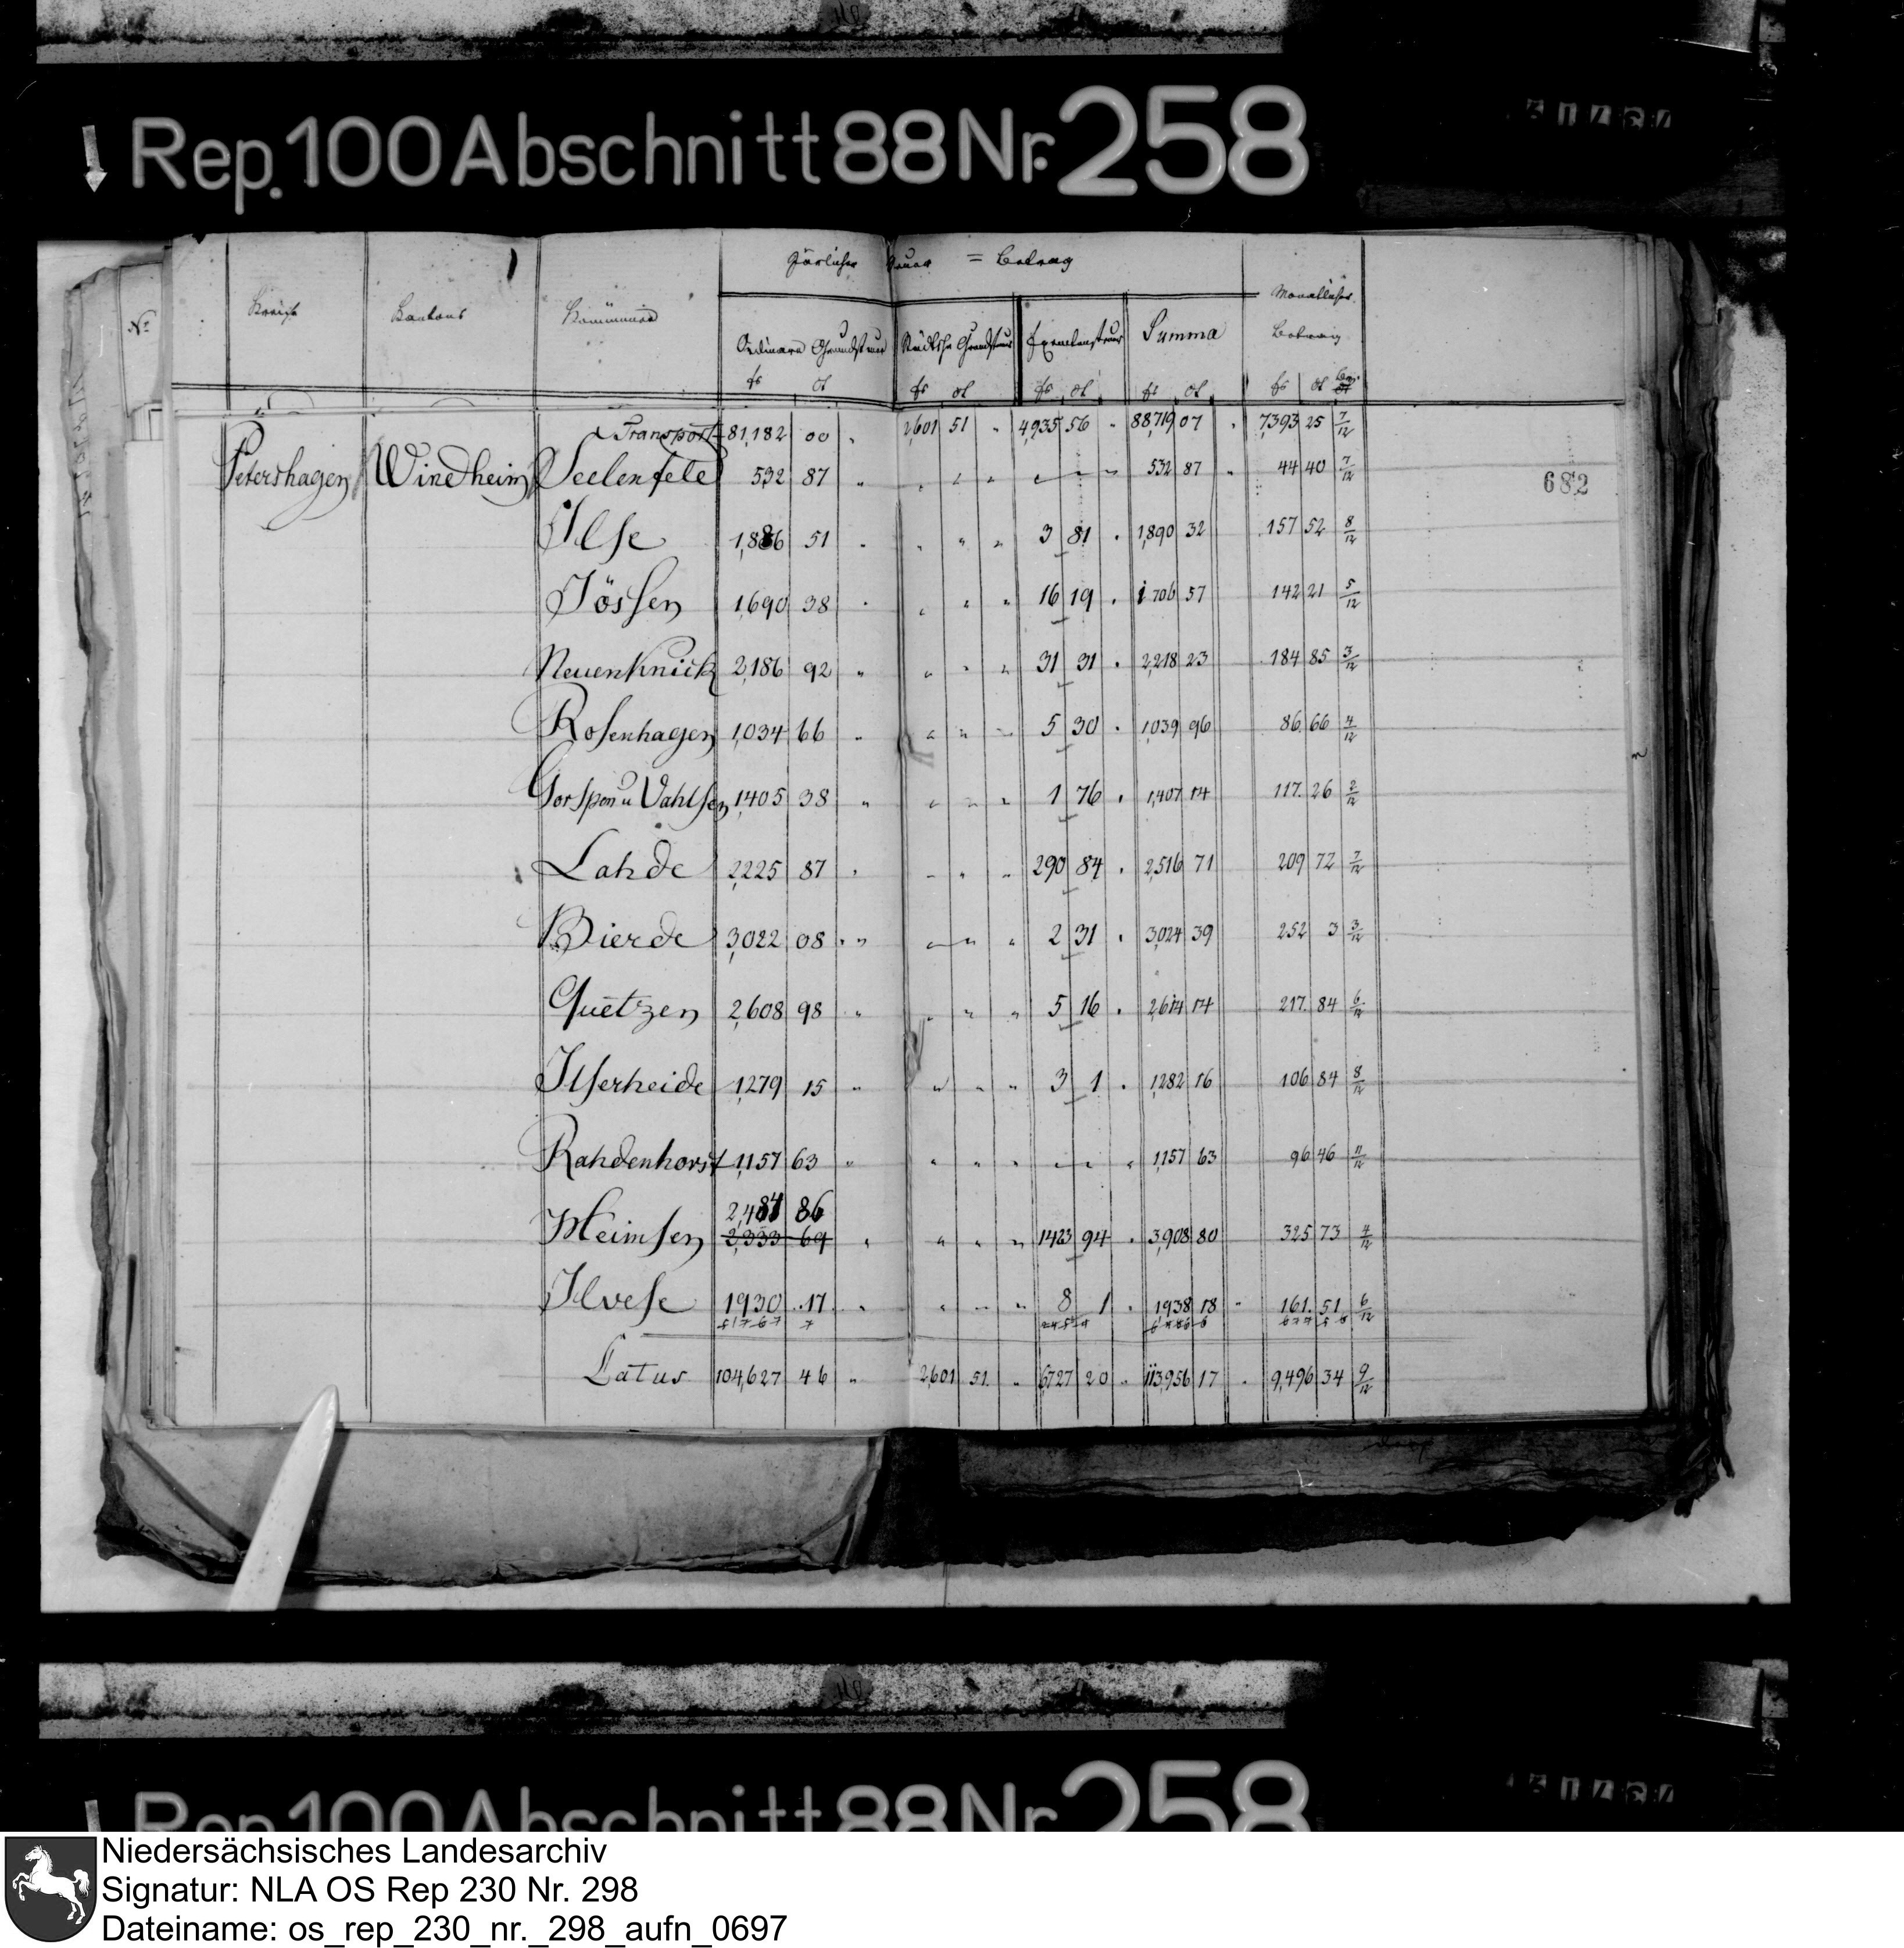 Rep. 100 Abschnitt 88 Nr. 258
Jährlicher Steuer = Betrag
Monatlicher
Betrag
No Kreise Cantons Kommunen
Ordinare Grundsteuer Grundsteuer Exemtensteuer Summa
fs ct fs ct fs ct fs ct fs ct
Transport 81,182 00 " 2,601 51 " 4,935 56 " 88,719 07 " 7,393 25 7/12
Petershagen Windheim Seelenfeld 532 87 " " " " " " " 532 87 " 44 40 7/12
682
Ilse 1,886 51 " " " " 3 81 " 1,890 32 157 52 8/12
Jössen 1,690 38 " " " " 16 19 " 1706 57 142 21 5/12
Neuenknick 2,186 92 " " " " 31 31 " 2,218 23 184 85 3/12
Rosenhagen 1,034 66 " " " " 5 30 " 1,039 96 86 66 4/12
Gorspen u Vahlsen 1,405 38 " " " " 1 76 " 1,407 14 117. 26 2/12
Lahde 2,225 87 " " " " 290 84 " 2,516 71 209 72 7/12
Bierde 3,022 08 " " " " 2 31 " 3,024 39 252 3 3/12
Quetzen 2,608 98 " " " " 5 16 " 2,614 14 217. 84 6/12
Ilserheide 1,279 15 " " " " 3 1 " 1,282 16 106 84 8/12
Rahdenhorst 1,157 63 " " " " " " " 1,157 63 96 46 11/12
2,484 86
Heimsen 2,333 69 " " " " 1423 94 " 3,908 80 325 73 4/12
Ilvese 1930 17 " " " " 8 1 " 1938 18 " 161. 51 6/12
Latus 104,627 46 " 2,601 51 " 6,727 20 " 113,956 17 " 9,496 34 9/12
Rep. 100 Abschnitt 88 Nr. 258
Niedersächsisches Landesarchiv
Signatur: NLA OS Rep 230 Nr. 298
Dateiname: os_rep_230_nr._298_aufn_0697